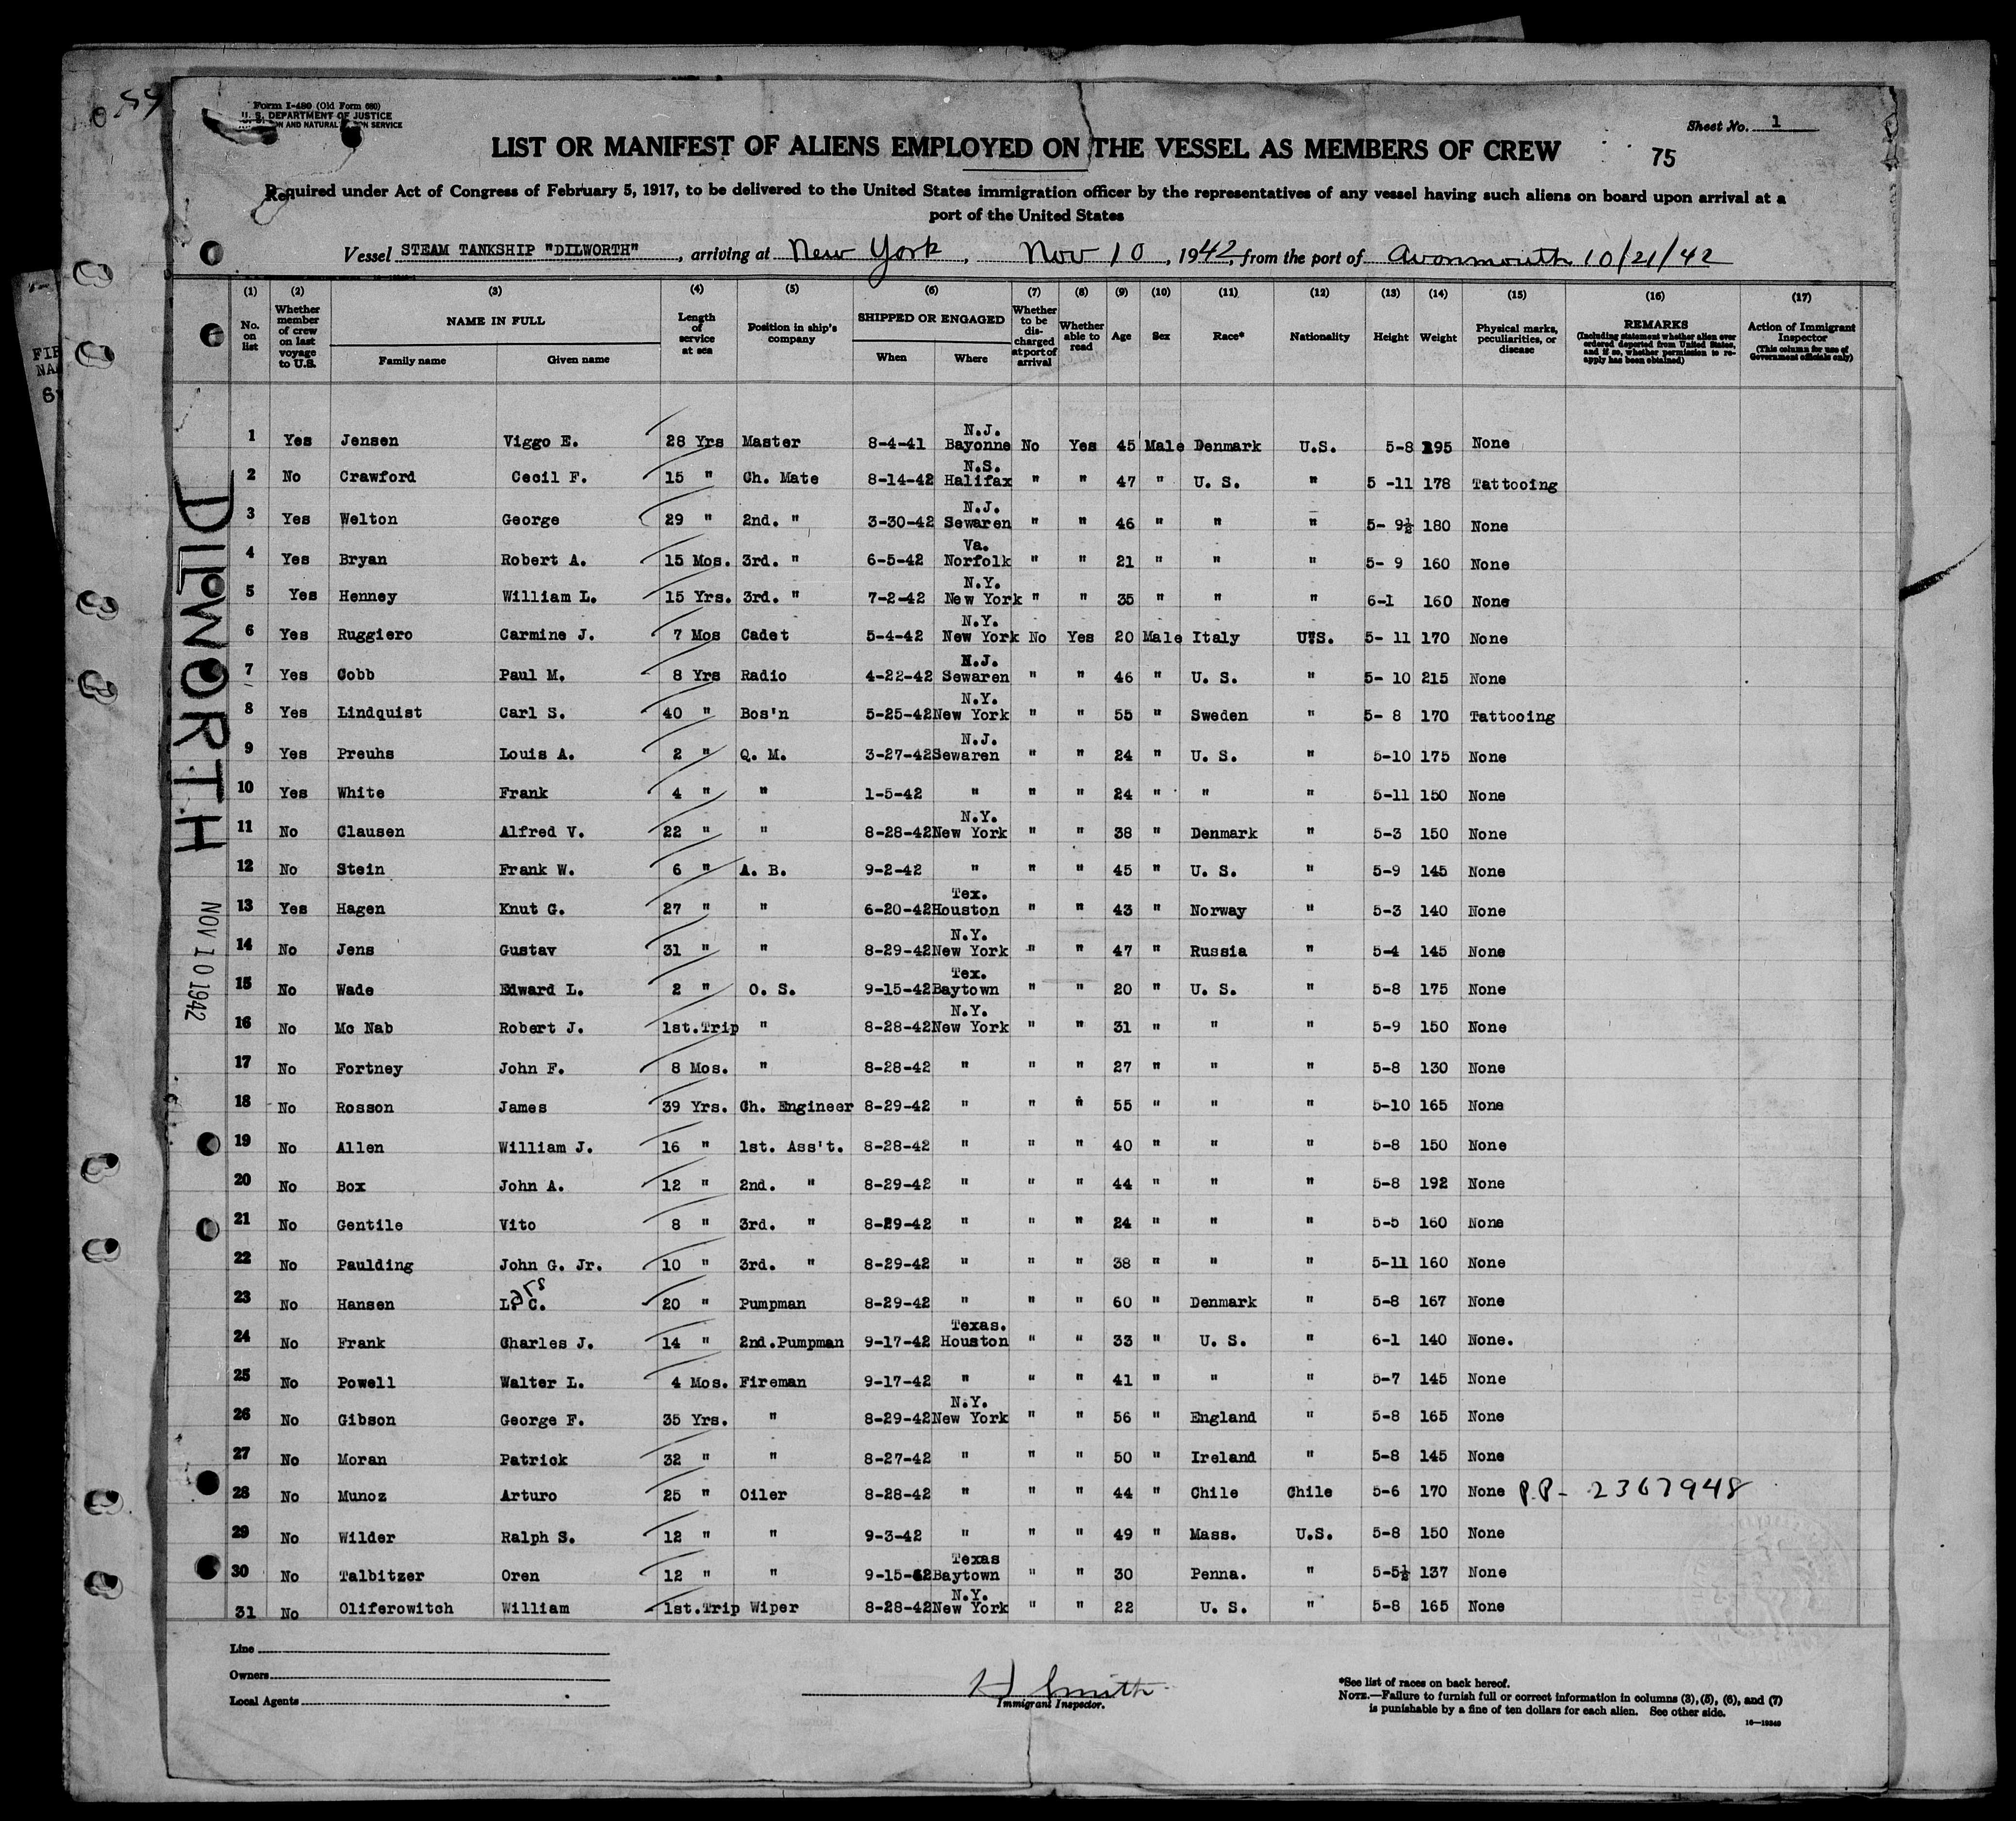 Form I-480 (Old Form 680)
U. S. DEPARTMENT OF JUSTICE
AND NATURAL SERVICE
Sheet No. 1
LIST OR MANIFEST OF ALIENS EMPLOYED ON THE VESSEL AS MEMBERS OF CREW
75
Required under Act of Congress of February 5, 1917, to be delivered to the United States immigration officer by the representatives of any vessel having such aliens on board upon arrival at a
port of the United States
Vessel STEAM TANKSHIP "DILWORTH", arriving at New York, Nov 10, 1942, from the port of Avonmouth 10/21/42
(1) (2) (3) (4) (5) (6) (7) (8) (9) (10) (11) (12) (13) (14) (15) (16) (17)
No. on list
Whether member of crew on last voyage to U.S.
NAME IN FULL
Family name Given name
Length of service at sea
Position in ship's company
SHIPPED OR ENGAGED
When Where
Whether to be discharged at port of arrival
Whether able to read
Age Sex Race* Nationality Height Weight
Physical marks, peculiarities, or disease
REMARKS
(Including statement whether alien ever ordered deported from United States, and if so, whether permission to reapply has been obtained)
Action of Immigrant Inspector
(This column for use of Government officials only)
1 Yes Jensen Viggo E. 28 Yrs Master 8-4-41 N.J. Bayonne No Yes 45 Male Denmark U.S. 5-8 195 None
2 No Crawford Cecil F. 15 " Ch. Mate 8-14-42 N.S. Halifax " " 47 " U. S. " 5 -11 178 Tattooing
3 Yes Welton George 29 " 2nd. " 3-30-42 N.J. Sewaren " " 46 " " " 5- 9½ 180 None
4 Yes Bryan Robert A. 15 Mos. 3rd. " 6-5-42 Va. Norfolk " " 21 " " " 5- 9 160 None
5 Yes Henney William L. 15 Yrs. 3rd. " 7-2-42 N.Y. New York " " 35 " " " 6-1 160 None
6 Yes Ruggiero Carmine J. 7 Mos Cadet 5-4-42 N.Y. New York No Yes 20 Male Italy U.S. 5- 11 170 None
7 Yes Cobb Paul M. 8 Yrs Radio 4-22-42 N.J. Sewaren " " 46 " U. S. " 5- 10 215 None
8 Yes Lindquist Carl S. 40 " Bos'n 5-25-42 N.Y. New York " " 55 " Sweden " 5- 8 170 Tattooing
9 Yes Preuhs Louis A. 2 " Q. M. 3-27-42 N.J. Sewaren " " 24 " U. S. " 5-10 175 None
10 Yes White Frank 4 " " 1-5-42 " " " 24 " " " 5-11 150 None
11 No Clausen Alfred V. 22 " " 8-28-42 N.Y. New York " " 38 " Denmark " 5-3 150 None
12 No Stein Frank W. 6 " A. B. 9-2-42 " " " 45 " U. S. " 5-9 145 None
13 Yes Hagen Knut G. 27 " " 6-20-42 Tex. Houston " " 43 " Norway " 5-3 140 None
14 No Jens Gustav 31 " " 8-29-42 N.Y. New York " " 47 " Russia " 5-4 145 None
15 No Wade Edward L. 2 " O. S. 9-15-42 Tex. Baytown " " 20 " U. S. " 5-8 175 None
16 No Mc Nab Robert J. 1st.Trip " 8-28-42 N.Y. New York " " 31 " " " 5-9 150 None
17 No Fortney John F. 8 Mos. " 8-28-42 " " " 27 " " " 5-8 130 None
18 No Rosson James 39 Yrs. Ch. Engineer 8-29-42 " " " 55 " " " 5-10 165 None
19 No Allen William J. 16 " 1st. Ass't. 8-28-42 " " " 40 " " " 5-8 150 None
20 No Box John A. 12 " 2nd. " 8-29-42 " " " 44 " " " 5-8 192 None
21 No Gentile Vito 8 " 3rd. " 8-29-42 " " " 24 " " " 5-5 160 None
22 No Paulding John G. Jr. 10 " 3rd. " 8-29-42 " " " 38 " " " 5-11 160 None
23 No Hansen Lars C. 20 " Pumpman 8-29-42 " " " 60 " Denmark " 5-8 167 None
24 No Frank Charles J. 14 " 2nd.Pumpman 9-17-42 Texas. Houston " " 33 " U. S. " 6-1 140 None.
25 No Powell Walter L. 4 Mos. Fireman 9-17-42 " " " 41 " " " 5-7 145 None
26 No Gibson George F. 35 Yrs. " 8-29-42 N.Y. New York " " 56 " England " 5-8 165 None
27 No Moran Patrick 32 " " 8-27-42 " " " 50 " Ireland " 5-8 145 None
28 No Munoz Arturo 25 " Oiler 8-28-42 " " " 44 " Chile Chile 5-6 170 None P.P- 2367948
29 No Wilder Ralph S. 12 " " 9-3-42 " " " 49 " Mass. U.S. 5-8 150 None
30 No Talbitzer Oren 12 " " 9-15-42 Texas Baytown " " 30 Penna. " 5-5½ 137 None
31 No Oliferowitch William 1st.Trip Wiper 8-28-42 N.Y. New York " " 22 U. S. " 5-8 165 None
DILWORTH
NOV 10 1942
Line
Owners
Local Agents
H Smith
Immigrant Inspector.
*See list of races on back hereof.
NOTE.—Failure to furnish full or correct information in columns (3), (5), (6), and (7)
is punishable by a fine of ten dollars for each alien. See other side.